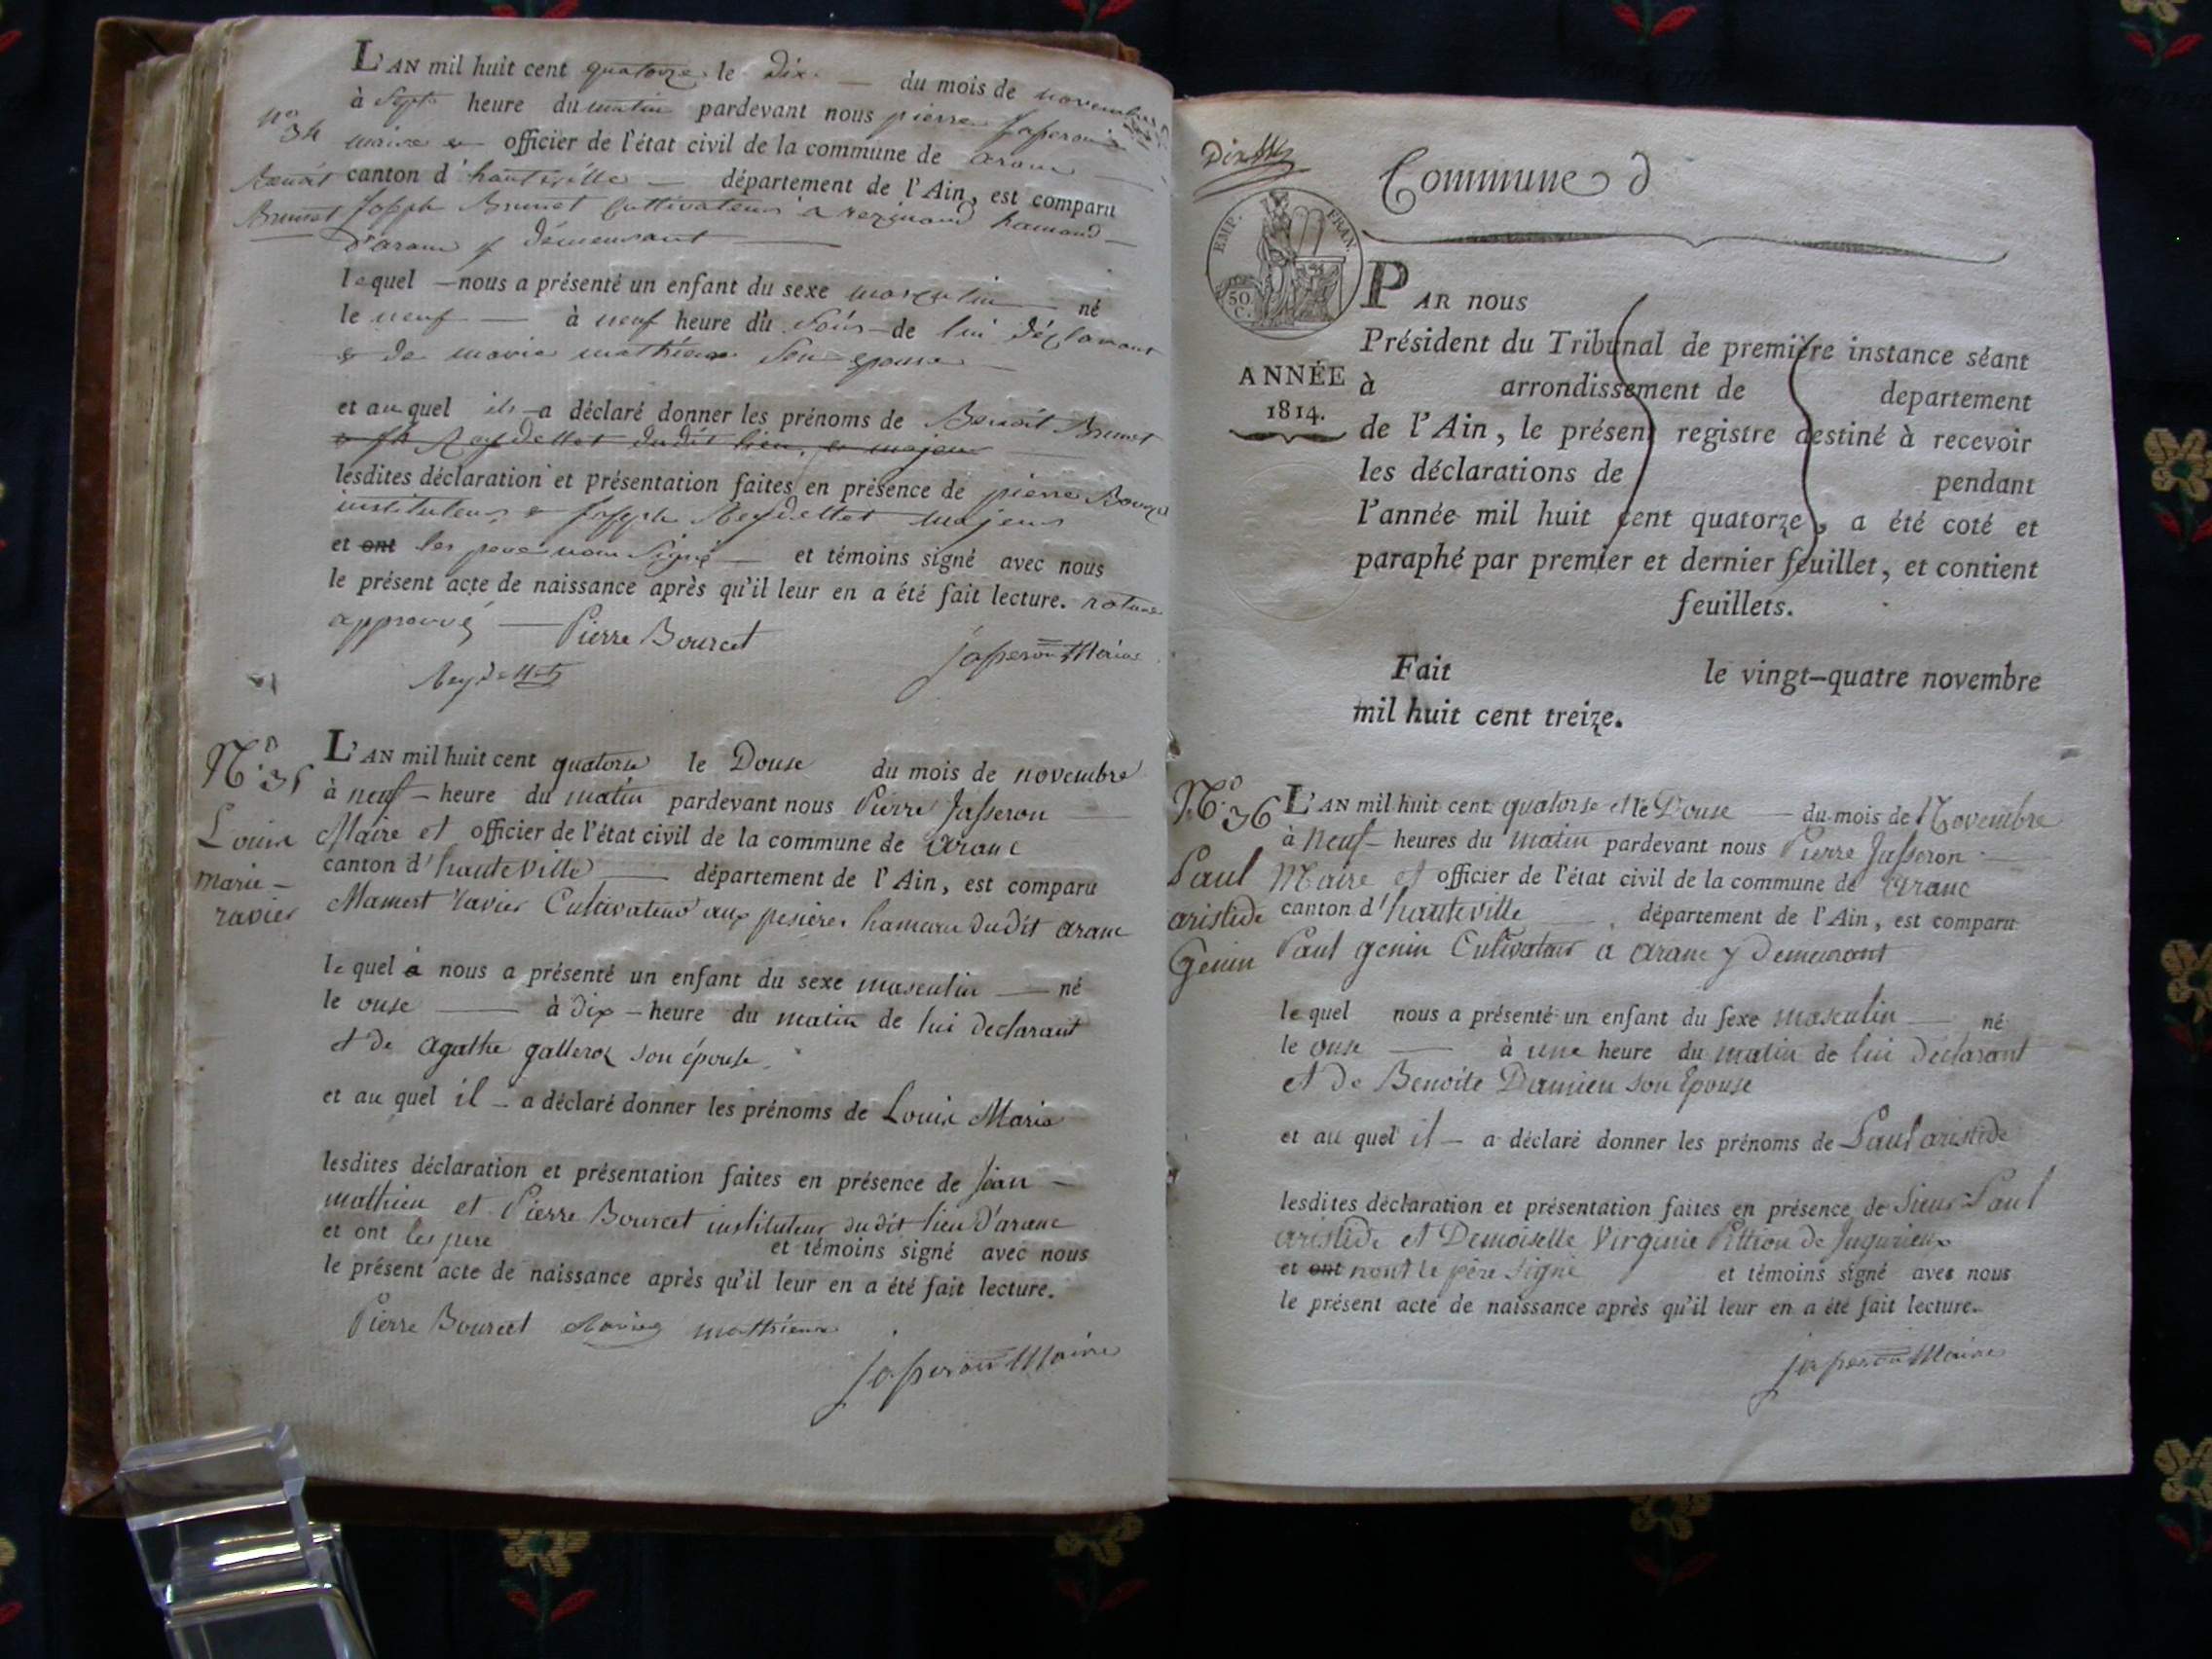 L'AN mil huit cent quatorze le dix du mois de novembre
à sept heure du matin pardevant nous pierre Jasseron
n° 34
maire & officier de l'état civil de la commune de aranc
Benoit
canton d'hauteville département de l'Ain, est comparu
Brunet
Joseph Brunet Cultivateur a rezinand hamand
d'aranc y demeurant
lequel nous a présenté un enfant du sexe masculin né
le neuf à neuf heure du soir de lui déclarant
& de marie mathieu son epouse
et au quel il a déclaré donner les prénoms de Benoit Brunet
lesdites déclaration et présentation faites en présence de pierre
instituteur & Joseph Reydellet majeur
et ont les pere non signé et témoins signé avec nous
le présent acte de naissance après qu'il leur en a été fait lecture.
approuvé Pierre Bourcet
Jasseron Maire
Reydellet
N° 35
L'AN mil huit cent quatorse le Douse du mois de novembre
à neuf heure du matin pardevant nous Pierre Jasseron
Louis
Maire et officier de l'état civil de la commune de aranc
marie
canton d'hauteville département de l'Ain, est comparu
ravier
Mamert ravier Cultivateur aux pesieres hameau dudit aranc
le quel a nous a présenté un enfant du sexe masculin né
le onse à dix heure du matin de lui declarant
et de agathe son épouse
et au quel il a déclaré donner les prénoms de Louis Marie
lesdites déclaration et présentation faites en présence de jean
mathieu et Pierre Bourcet instituteur dudit lieu d'aranc
et ont les pere et témoins signé avec nous
le présent acte de naissance après qu'il leur en a été fait lecture.
Pierre Bourcet Ravier mathieu
Jasseron Maire
Commune d
EMP. FRAN.
50.
C.
ANNÉE
1814.
PAR nous
Président du Tribunal de première instance séant
à arrondissement de departement
de l'Ain, le présent registre destiné à recevoir
les déclarations de pendant
l'année mil huit cent quatorze, a été coté et
paraphé par premier et dernier feuillet, et contient
feuillets.
Fait le vingt-quatre novembre
mil huit cent treize.
N° 36
L'AN mil huit cent quatorse et le Douse du mois de Novembre
à neuf heures du matin pardevant nous Pierre Jasseron
Paul
Maire et officier de l'état civil de la commune de aranc
aristide
canton d'hauteville département de l'Ain, est comparu
Genin
Paul genin Cultivateur a aranc y demeurant
le quel nous a présenté un enfant du sexe masculin né
le onse à une heure du matin de lui declarant
et de Benoite Damien son Epouse
et au quel il a déclaré donner les prénoms de Paul aristide
lesdites déclaration et présentation faites en présence de sieur Paul
aristide et Demoiselle Virginie de Jugurieux
et ont nont le père signé et témoins signé avec nous
le présent acte de naissance après qu'il leur en a été fait lecture.
Jasseron Maire